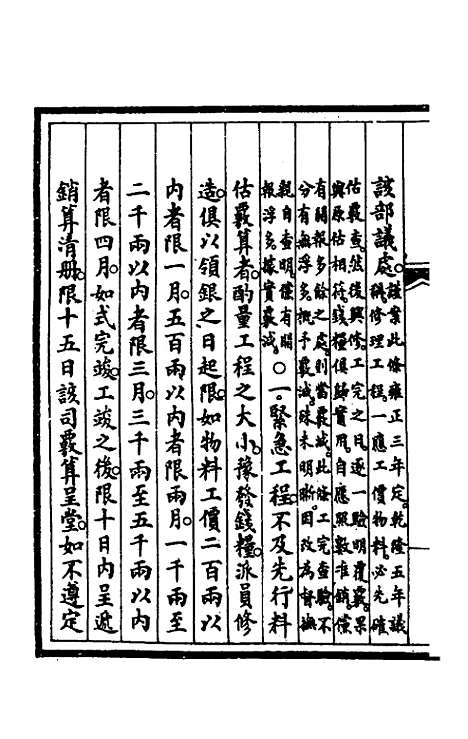 該部議處。謹案此條雍正三年定。乾隆五年議
稱。修理工程。一應工價物料。必先確
估覈查。然後興修。工完之日。逐一驗明覆覈。果
與原估相符。錢糧俱歸實用。自應照數准銷。儻
有開報多餘之處。則當覈減。此條工完查驗。不
分有無浮多。概予覈減。殊未明晰。因改為督撫
親自查明。儻有開
報浮多。據實覈減。○一。緊急工程。不及先行料
估覈算者。酌量工程之大小。豫發錢糧。派員修
造。俱以領銀之日起限。如物料工價二百兩以
內者限一月。五百兩以內者限兩月。一千兩至
二千兩以內者限三月。三千兩至五千兩以內
者限四月。如式完竣。工竣之後。限十日內呈遞
銷算清冊。限十五日該司覈算呈堂。如不遵定